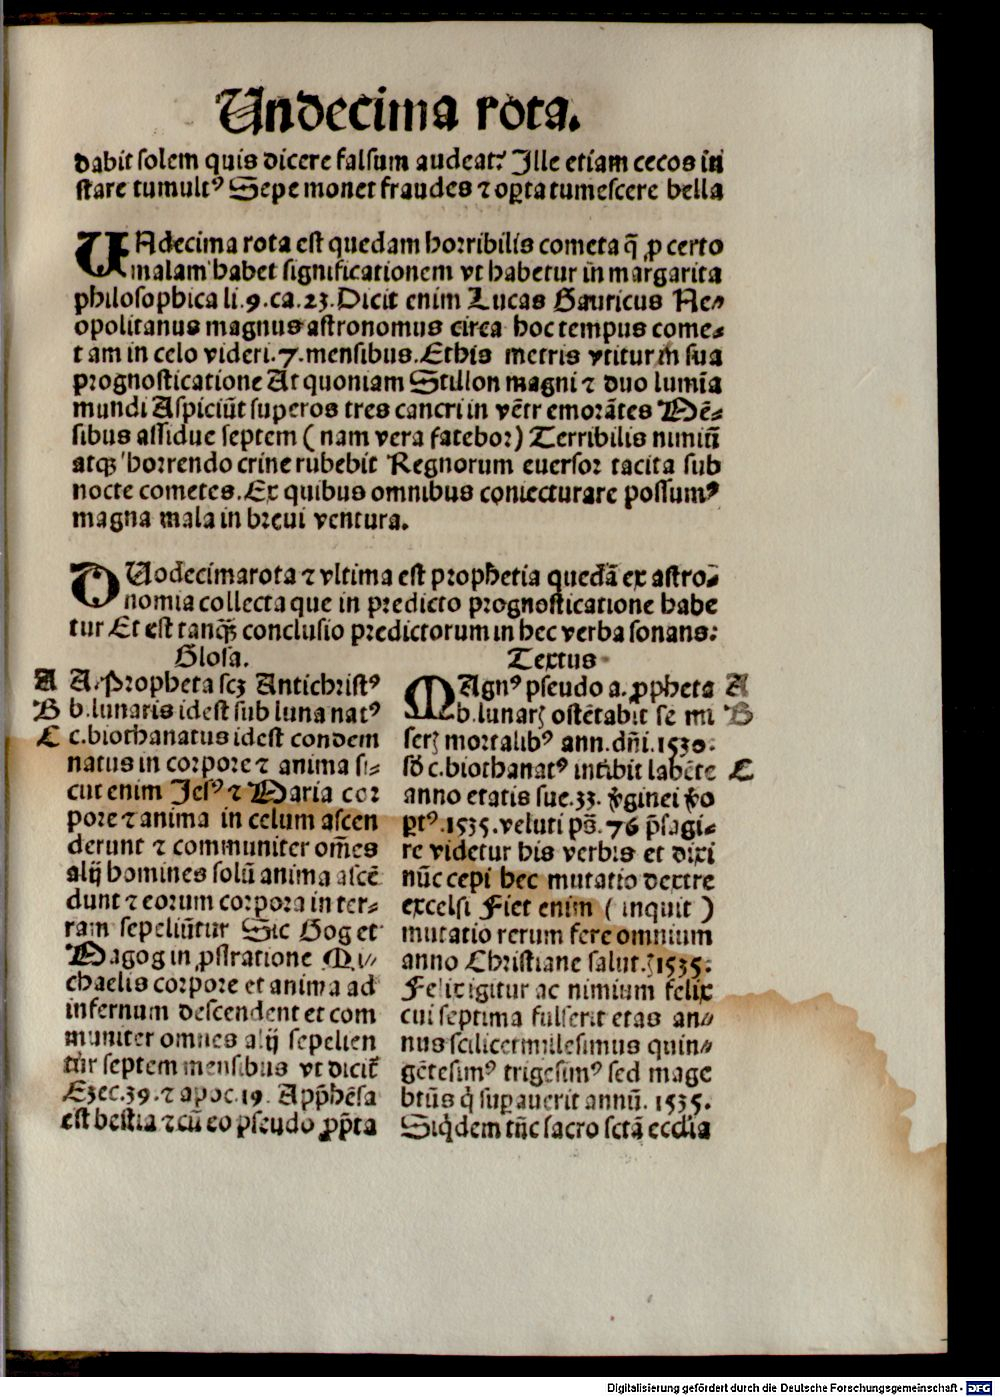 Undecima rota.
dabit solem quis dicere falsum audeat? Ille etiam cecos in
stare tumultꝰ Sepe monet fraudes ⁊ oꝑta tumescere bella
UNdecima rota est quedam horribilis cometa q̃ ꝓ certo
malam habet significationem vt habetur in margarita
philosophica li.9.ca.23. Dicit enim Lucas Gauricus Ne⸗
opolitanus magnus astronomus circa hoc tempus come⸗
tam in celo videri.7.mensibus. Et his metris vtitur in sua
prognosticatione At quoniam Stillon magni ⁊ duo lumīa
mundi Aspiciūt superos tres cancri in vētre morātes Mē⸗
sibus assidue septem (nam vera fatebor) Terribilis nimiū
atqꝫ horrendo crine rubebit Regnorum euersor tacita sub
nocte cometes. Ex quibus omnibus coniecturare possumꝰ
magna mala in breui ventura.
DUodecima rota ⁊ vltima est prophetia quedā ex astro⸗
nomia collecta que in predicto prognosticatione habe
tur Et est tanqꝫ conclusio predictorum in hec verba sonans:
Glosa.
A A. Propheta scꝫ Antichristꝰ
B b. lunaris idest sub luna natꝰ
C c. biothanatus idest condem
natus in corpore ⁊ anima si⸗
cut enim Jesꝰ ⁊ Maria cor
pore ⁊ anima in celum ascen
derunt ⁊ communiter om̄es
alij homines solū anima ascē
dunt ⁊ eorum corpora in ter⸗
ram sepeliūtur Sic Gog et
Magog in ꝓstratione Mi⸗
chaelis corpore et anima ad
infernum descendent et com
muniter omnes alij sepelien
tur septem mensibus vt dicit̄
Ezec.39. ⁊ apoc.19. App̄hēsa
est bestia ⁊ cū eo pseudo ꝓp̄ta
Textus
MAgnꝰ pseudo a. ꝓpheta A
b. lunarꝫ ostētabit se mi B
serꝫ mortalibꝰ ann.dn̄i.1530.
sꝫ c. biothanatꝰ labēte C
anno etatis sue.33. ginei
ꝑtꝰ.1535. veluti ps̄.76 p̄sagi⸗
re videtur his verbis et dixi
nūc cepi hec mutatio dextre
excelsi Fiet enim (inquit)
mutatio rerum fere omnium
anno Christiane salut.ꝫ 1535.
Felix igitur ac nimium felix
cui septima fulserit etas an⸗
nus scilicet milesimus quin⸗
gētesimꝰ trigesimꝰ sed mage
btūs q̇ suꝑauerit annū. 1535.
Siq̇dem tūc sacro sctā ecclīa
Digitalisierung gefördert durch die Deutsche Forschungsgemeinschaft - DFG